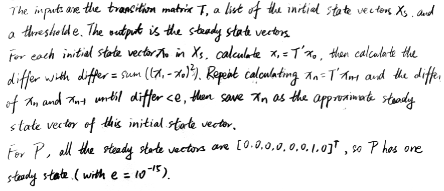 The inputs are the transition matrix T, a list of the initial state vectors Xs, and
a threshold e. The output is the steady state vectors
For each initial state vector x₀ in Xs, calculate x₁ = T'x₀, then calculate the
differ with differ = sum ((x₁ - x₀)²). Repeat calculating xn = T'xn-1 and the differ
of xn and xn-1 until differ < e, then save xn as the approximate steady
state vector of this initial state vector.
For P, all the steady state vectors are [0.0.0.0.0.0.1.0]ᵀ, so P has one
steady state. (with e = 10⁻¹⁵).